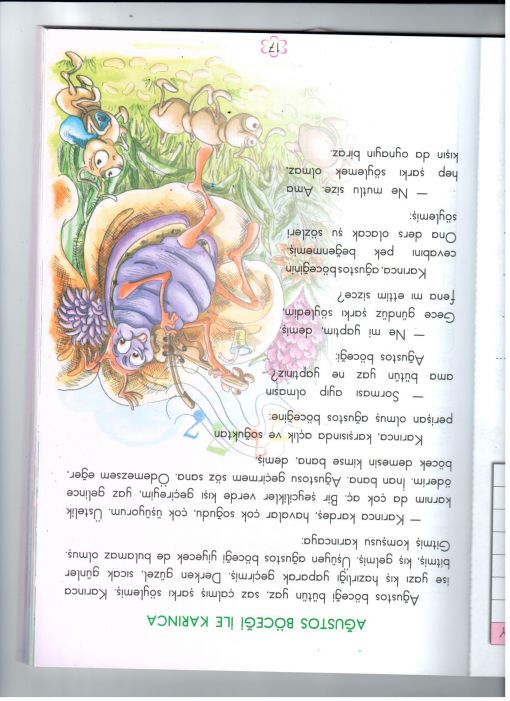 AĞUSTOS BÖCEĞİ İLE KARINCA
Ağustos böceği bütün yaz, saz çalmış şarkı söylemiş. Karınca
ise yazı kış hazırlığı yaparak geçirmiş. Derken güzel, sıcak günler
bitmiş, kış gelmiş. Üşüyen ağustos böceği yiyecek de bulamaz olmuş.
Gitmiş komşusu karıncaya:
— Karınca kardeş, havalar çok soğudu, çok üşüyorum. Üstelik
karnım da çok aç. Bir şeycikler verde kışı geçireyim, yaz gelince
öderim. İnan bana. Ağustosu geçirmem söz sana. Ödemezsem eğer,
böcek demesin kimse bana, demiş.
Karınca, karşısında açlık ve soğuktan
perişan olmuş ağustos böceğine:
— Sorması ayıp olmasın
ama bütün yaz ne yaptınız?
Ağustos böceği:
— Ne mi yaptım, demiş.
Gece gündüz şarkı söyledim,
fena mı ettim sizce?
Karınca, ağustos böceğinin
cevabını pek beğenmemiş.
Ona ders olacak şu sözleri
söylemiş:
— Ne mutlu size. Ama
hep şarkı söylemek olmaz,
kışın da oynayın biraz.
17